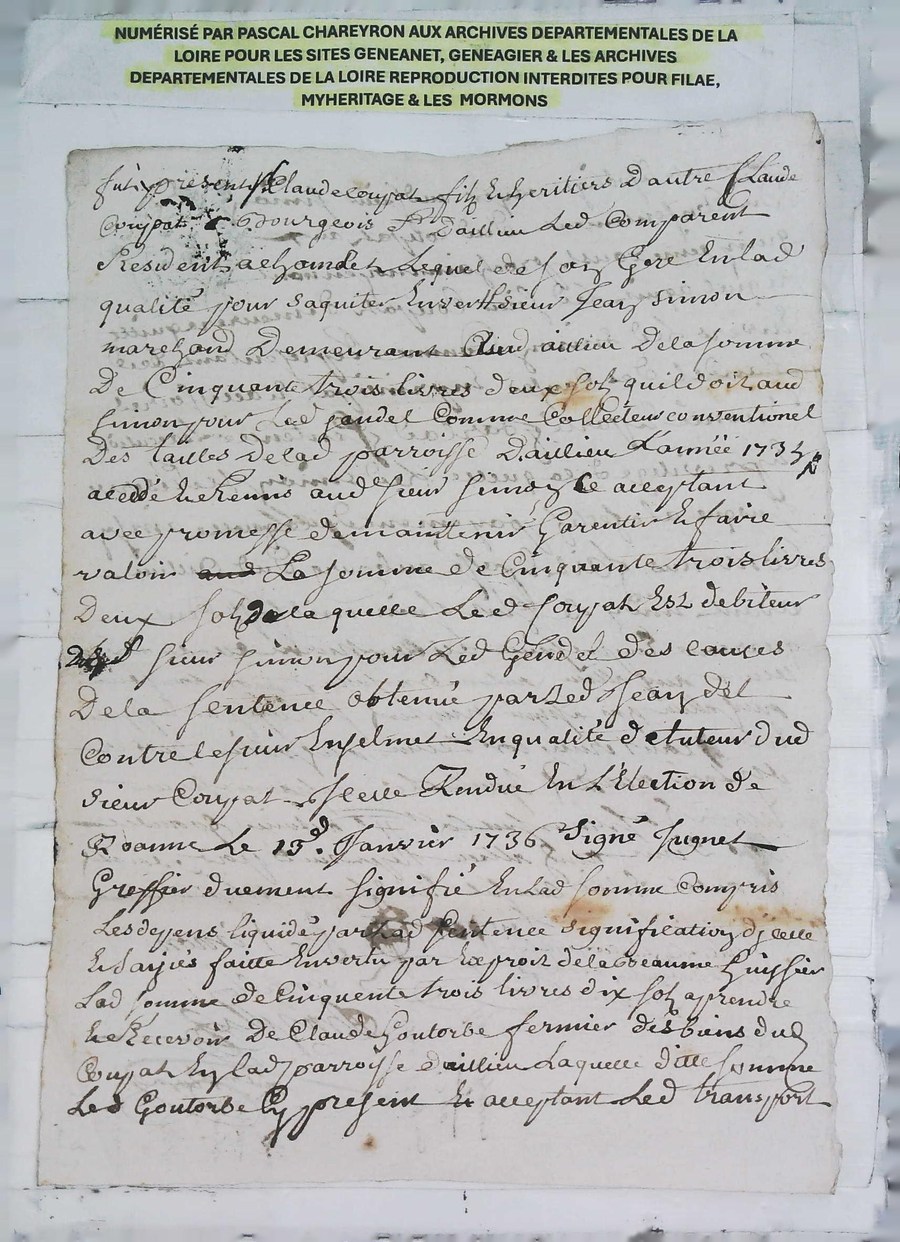 NUMÉRISÉ PAR PASCAL CHAREYRON AUX ARCHIVES DEPARTEMENTALES DE LA
LOIRE POUR LES SITES GENEANET, GENEAGIER & LES ARCHIVES
DEPARTEMENTALES DE LA LOIRE REPRODUCTION INTERDITES POUR FILAE,
MYHERITAGE & LES MORMONS
fut present Claude coupat fils & heritiers dautre Claude
Coupat bourgeois daillieu Led Comparent
Resident a Lequel de son Gere En lad
qualité pour saquiter Envers sieur Jean simon
marchand Demeurant aud aillieu De la somme
De Cinquante trois livres deux sols quil doit aud
simon pour Led jandel Comme Collecteur conventionel
Des tailles De lad parroisse Daillieu L'année 1735
accédé & Remis aud sieur simon Ce acceptant
avec promesse de maintenir Garentir & faire
valoir aud La somme de Cinquante trois livres
Deux sols De laquelle Led Coupat Est debiteur
sieur simon pour Led des causes
De la sentence obtenue par Led Jean
Contre le sieur Enselmet En qualité de tuteur dud
sieur Coupat Icelle Rendue En L'Election de
Roanne Le 13e. Janvier 1736 Signé Jugnet
Greffier duement signifié En lad somme Compris
Les depens liquidé par Lad sentence signification d'jcelle
& saisies faitte En vertu par Exploit de la Beaume huissier
Lad somme de Cinquente trois livres dix sols a prendre
& Recevoir De Claude Goutorbe fermier des biens dud
Coupat En lad parroisse daillieu Laquelle ditte somme
Led Goutorbe Cy present & acceptant Led transport